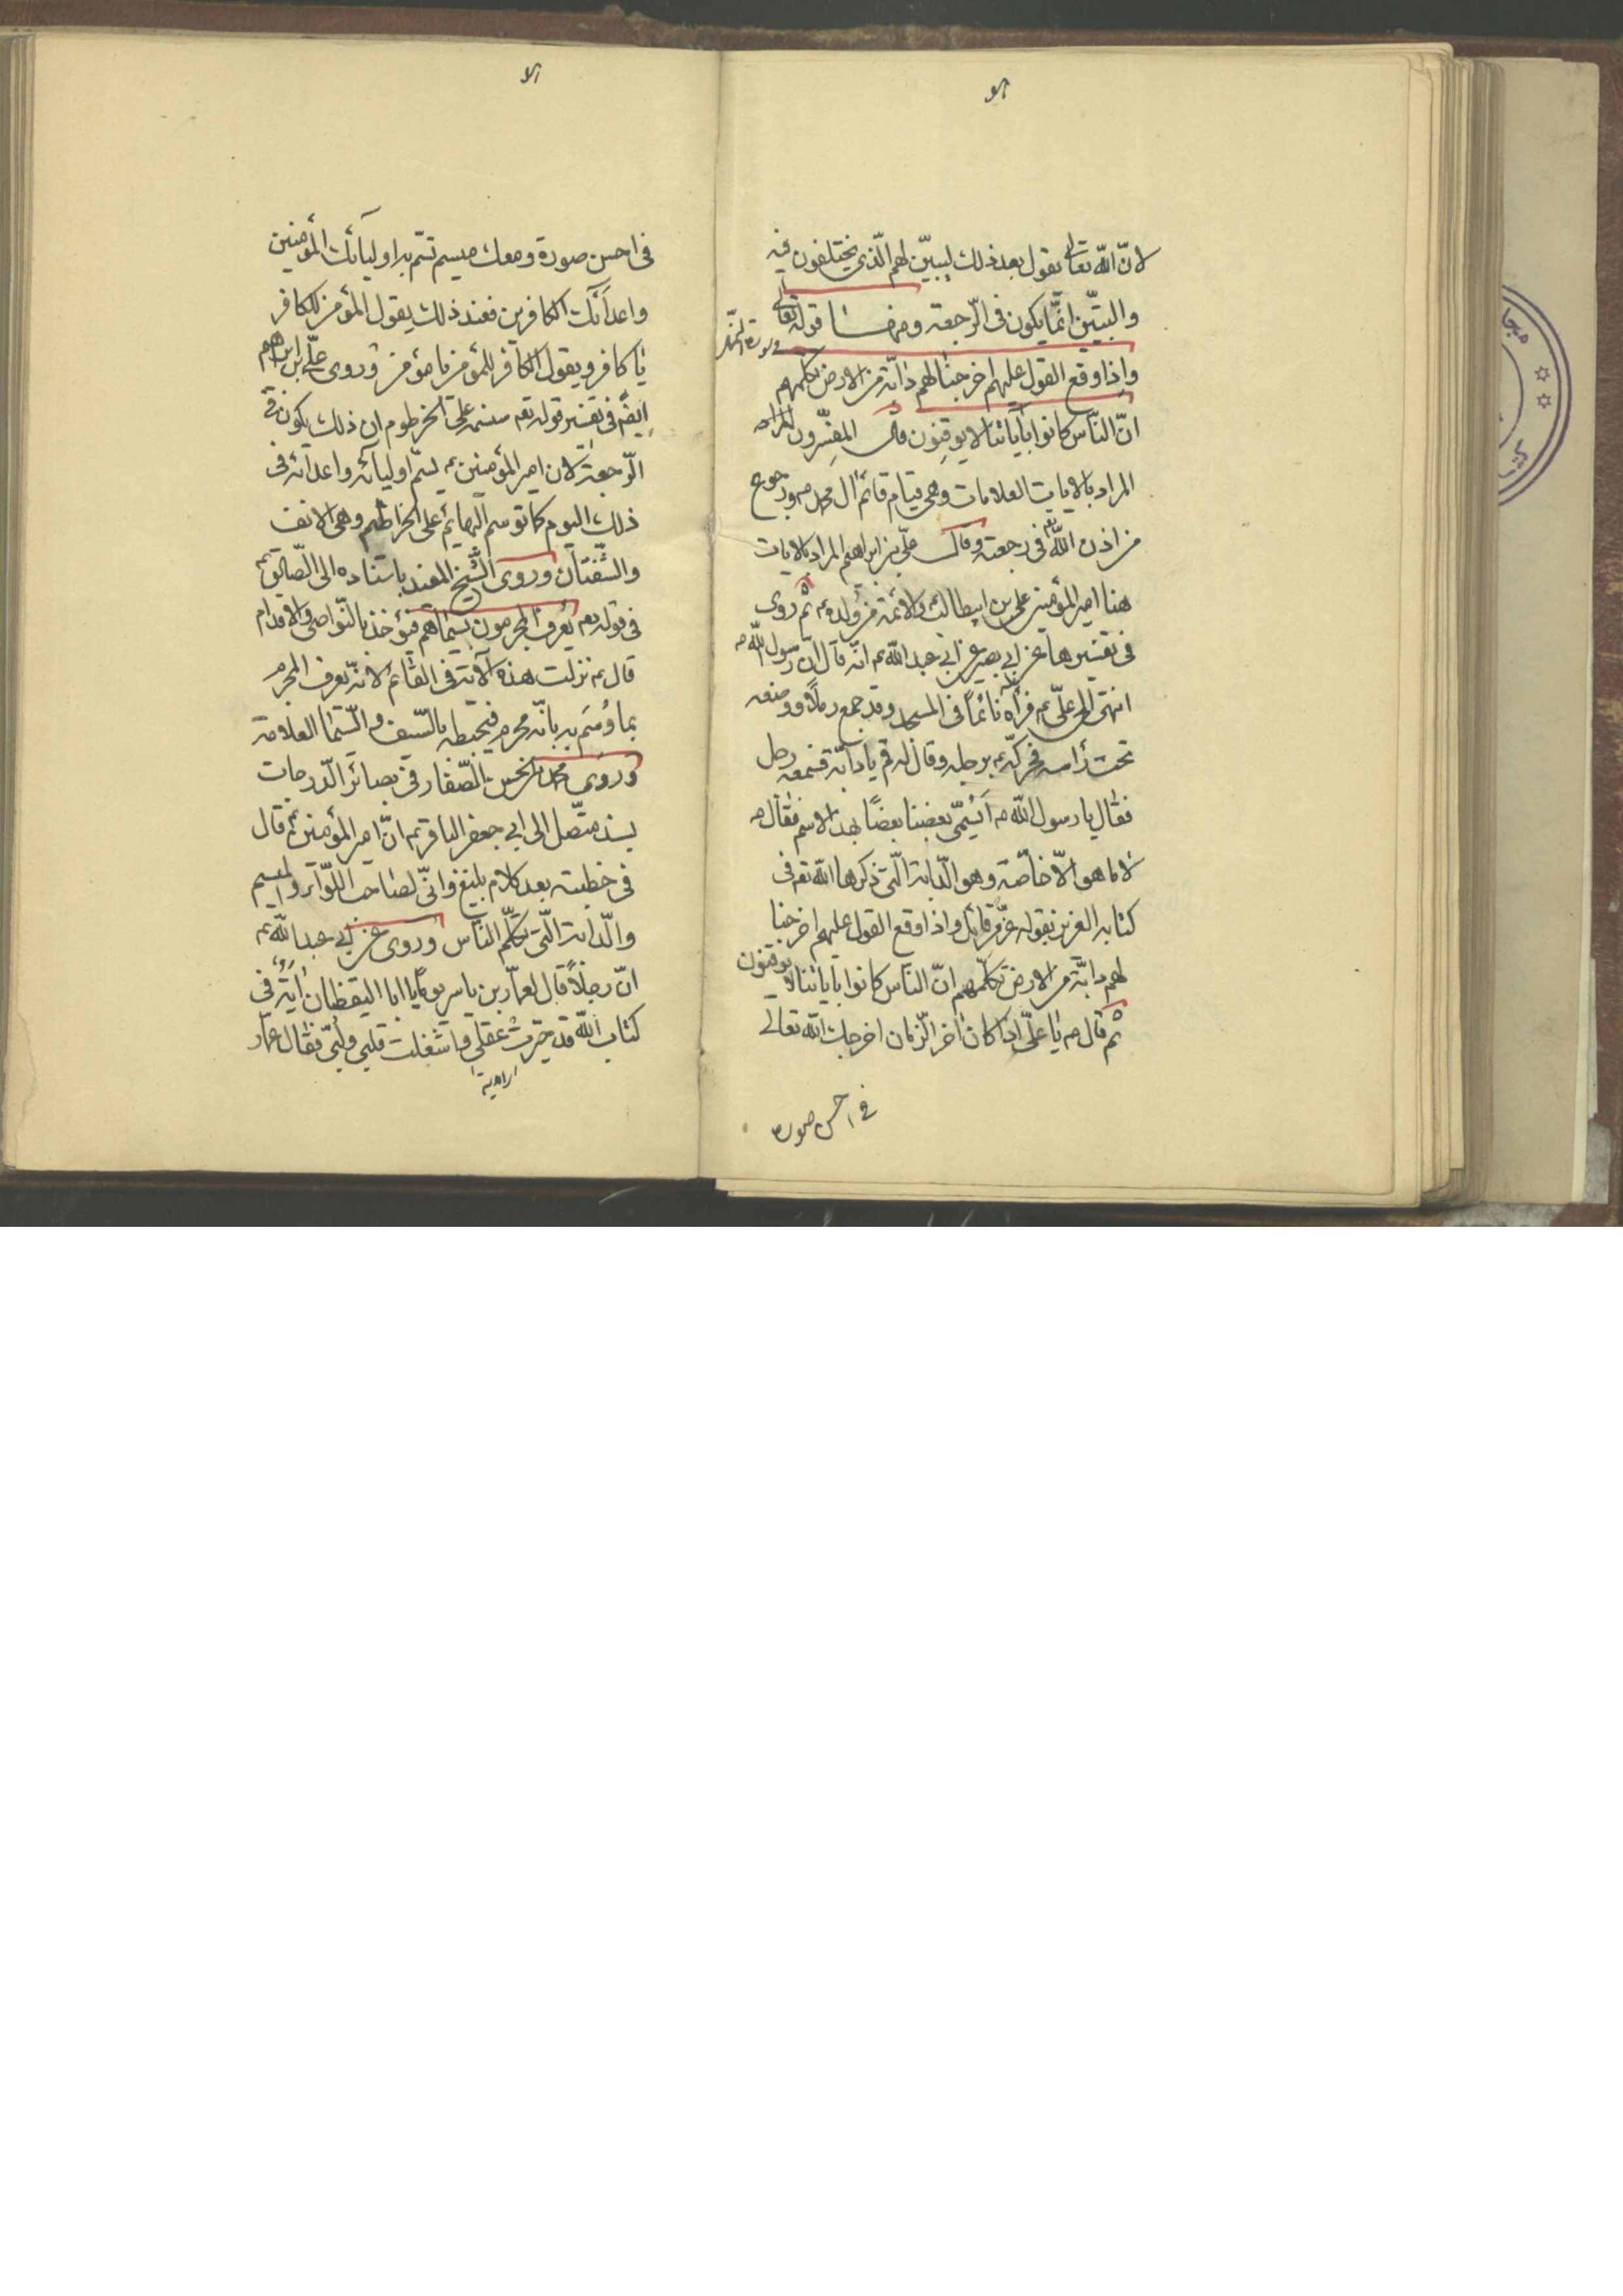 لانّ الله تعالى يقول بعد ذلك ليبيّن لهم الّذي يختلفون فيه
والتبيّن انّما يكون فى الرّجعة ومنها قوله تعالى
واذا وقع القول عليهم اخرجنا لهم دابّة من الارض تكلّمهم
انّ النّاس كانوا بآياتنا لا يوقنون قال المفسّرون
المراد بالايات العلامات وهى قيام قائم ال محمد ص ورجوع
من اذن الله فى رجعته وقال علّى بن ابراهيم المراد بالايات
هنا امير المؤمنين على بن ابيطالب والائمّة من ولده ع ثم روى
فى تفسيرها عن ابى بصير عن ابى عبد الله ع انّه قال انّ رسول الله ص
انتهى الى علّى ع فرأه نائماً فى المسجد وقد جمع رملاً ووضعه
تحت رأسه فحركّه برجله وقال له قم يا دابّة فسمعه رجل
فقال يا رسول الله ص أيسمّى بعضنا بعضاً بهذا الاسم فقال ص
لا ما هو الّا خاصّة وهو الدّابة الّتى ذكرها الله تع فى
كتابه العزيز بقوله عزّ من قائل واذا وقع القول عليهم اخرجنا
لهم دابّة من الارض تكلّمهم انّ النّاس كانوا بآياتنا لا يوقنون
ثم قال ص يا علّى اذا كان اخر الزّمان اخرجك الله تعالى
فى احسن صورة
فى احسن صورة ومعك ميسم تسّم به اوليائك المؤمنين
واعدائك الكافرين فعند ذلك يقول المؤمن للكافر
يا كافر ويقول الكافر للمؤمن يا مؤمن وروى علّى بن ابراهيم
ايضً فى تفسير قوله تع سنسمه على الخرطوم ان ذلك يكون فى
الرّجعة لان امير المؤمنين ع يسمّ اوليائه واعدائه فى
ذلك اليوم كما توسم البهائم على الخراطيم وهى الانف
والشّفتان وروى الشّيخ المفيد باسناده الى الصّادق ع
فى قوله تع يعرف المجرمون بسيماهم فيؤخذ بالنّواصى والاقدام
قال ع نزلت هذه الآية فى القائم لانّه يعرف المجرم
بما وُسَم به بانّه مجرم فيخبطه بالسّيف والسّيما العلامة
وروى محمد بن الحسن الصّفار فى بصائر الدّرجات
بسند متّصل الى ابى جعفر الباقر ع انّ امير المؤمنين ع قال
فى خطبته بعد كلام بليغ وانّى لصاحب اللّواء والميسم
والدّابة الّتى تكلّم النّاس وروى عن ابى عبد الله ع
انّ رجلاً قال لعمّار بن ياسر يوماً يا ابا اليقظان آية فى
كتاب الله قد حيّرت عقلى واشغلت قلبى ولبّى فقال عمّار